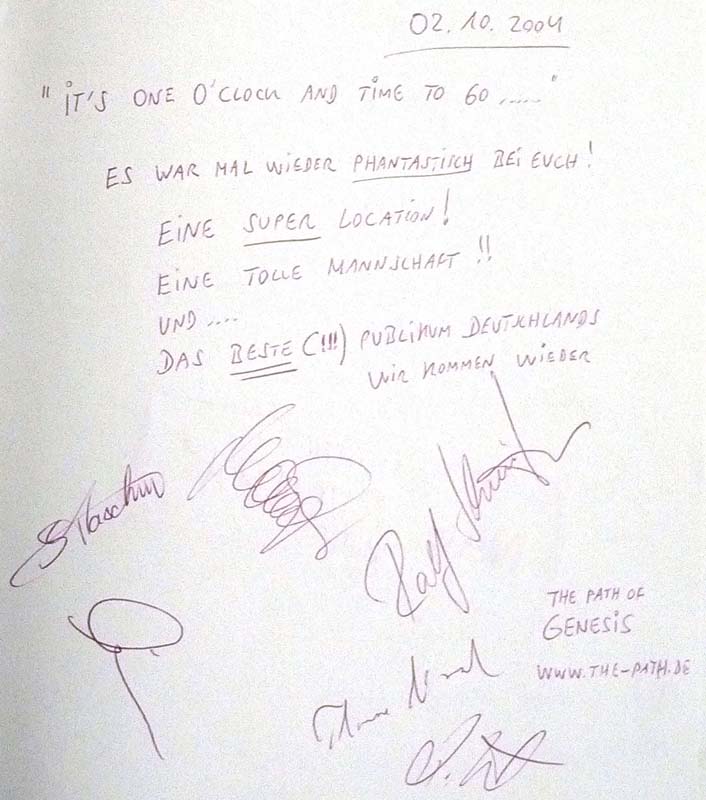 02.10.2004
"IT'S ONE O'CLOCK AND TIME TO GO ....."
ES WAR MAL WIEDER PHANTASTISCH BEI EUCH!
EINE SUPER LOCATION!
EINE TOLLE MANNSCHAFT!!
UND....
DAS BESTE (!!!) PUBLIKUM DEUTSCHLANDS
WIR KOMMEN WIEDER
Ralf
THE PATH OF
GENESIS
WWW.THE-PATH.DE